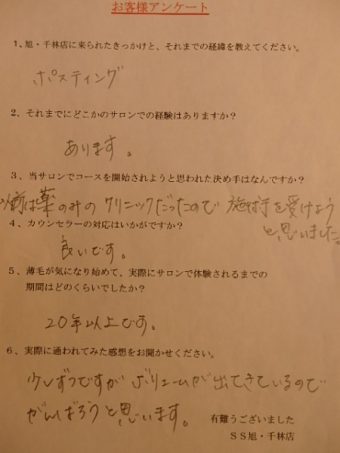 お客様アンケート
1、旭・千林店に来られたきっかけと、それまでの経緯を教えてください。
ポスティング
2、それまでにどこかのサロンでの経験はありますか?
あります。
3、当サロンでコースを開始されようと思われた決め手はなんですか?
以前は薬のみのクリニックだったので 施術を受けよう
と思いました。
4、カウンセラーの対応はいかがですか?
良いです。
5、薄毛が気になり始めて、実際にサロンで体験されるまでの
期間はどのくらいでしたか?
20年以上です。
6、実際に通われてみた感想をお聞かせください。
少しずつですが ボリュームが出てきているので
がんばろうと思います。
有難うございました
SS旭・千林店